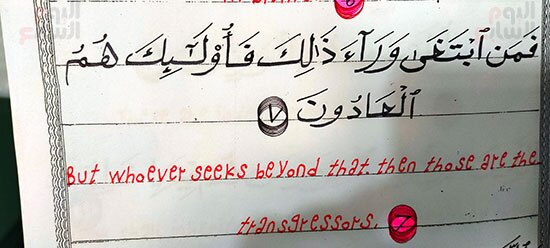 فَمَنِ ٱبْتَغَىٰ وَرَآءَ ذَٰلِكَ فَأُو۟لَٰٓئِكَ هُمُ
ٱلْعَادُونَ ٧
But whoever seeks beyond that then those are the
transgressors. 7